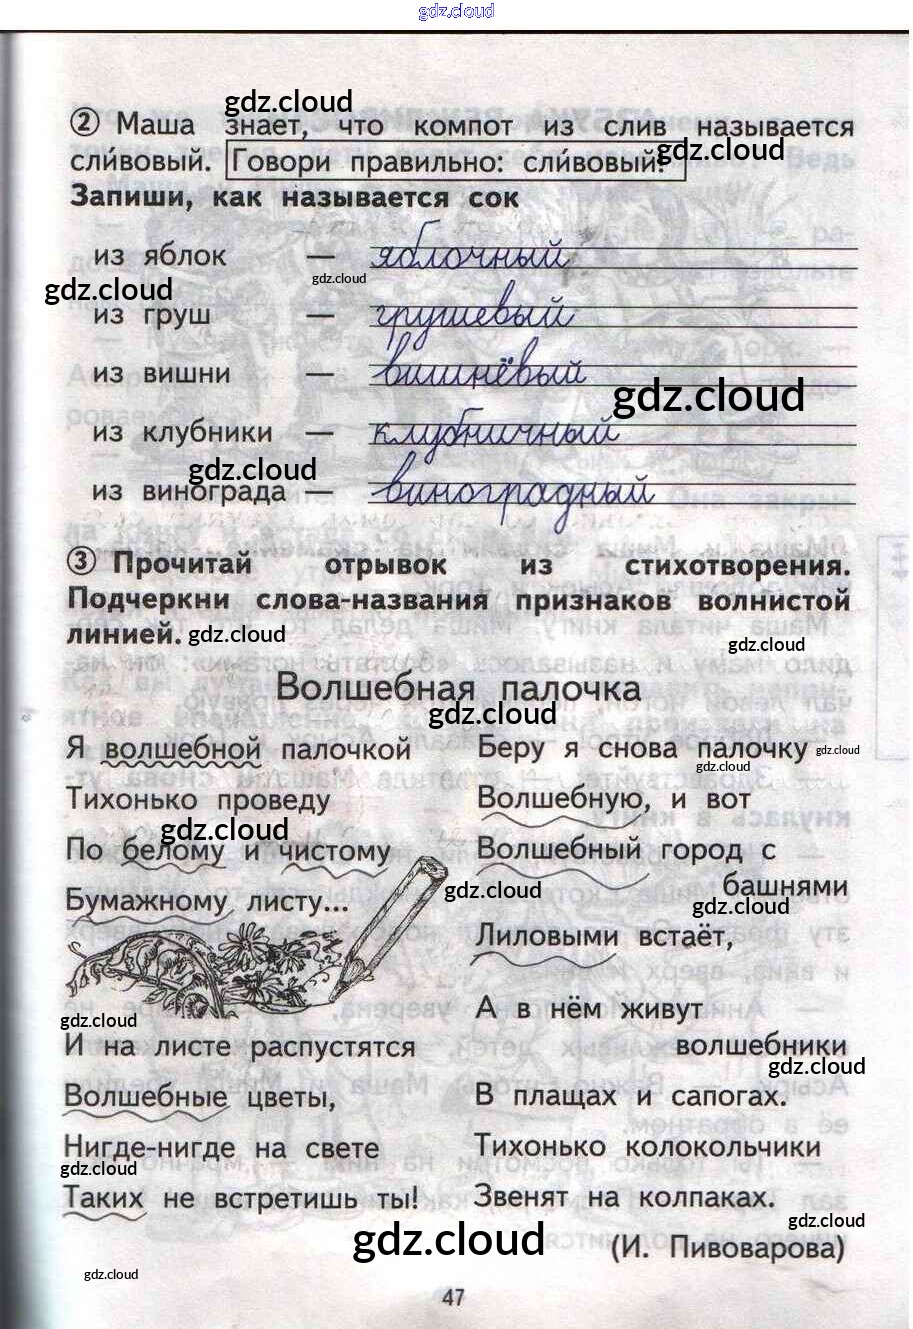 gdz.cloud
gdz.cloud
② Маша знает, что компот из слив называется
сли́вовый. Говори правильно: сли́вовый!
gdz.cloud
Запиши, как называется сок
из яблок — яблочный
gdz.cloud gdz.cloud
из груш — грушевый
из вишни — вишнёвый
gdz.cloud
из клубники — клубничный
gdz.cloud
из винограда — виноградный
③ Прочитай отрывок из стихотворения.
Подчеркни слова-названия признаков волнистой
линией. gdz.cloud gdz.cloud
Волшебная палочка
gdz.cloud
Я волшебной палочкой
Тихонько проведу
gdz.cloud
По белому и чистому
Бумажному листу...
gdz.cloud
И на листе распустятся
Волшебные цветы,
Нигде-нигде на свете
gdz.cloud
Таких не встретишь ты!
Беру я снова палочку gdz.cloud
gdz.cloud
Волшебную, и вот
Волшебный город с
башнями
gdz.cloud gdz.cloud
Лиловыми встаёт,
А в нём живут
волшебники
gdz.cloud
В плащах и сапогах.
Тихонько колокольчики
Звенят на колпаках.
gdz.cloud gdz.cloud
(И. Пивоварова)
gdz.cloud
47